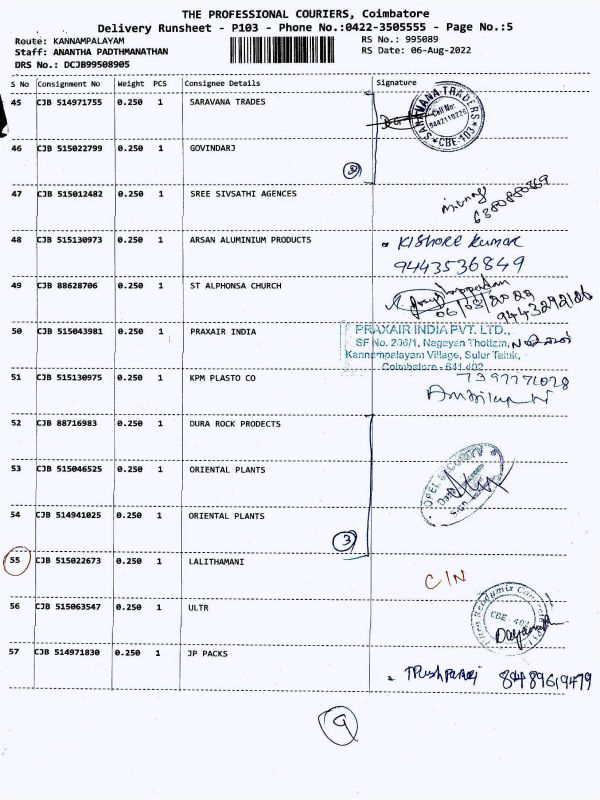 THE PROFESSIONAL COURIERS, Coimbatore
Delivery Runsheet - P103 - Phone No.:0422-3505555 - Page No.:5
Route: KANNAMPALAYAM RS No.: 995089
Staff: ANANTHA PADTHMANATHAN RS Date: 06-Aug-2022
DRS No.: DCJB99508905
S No Consignment No Weight PCS Consignee Details Signature
45 CJB 514971755 0.250 1 SARAVANA TRADES
SARAVANA TRADERS
Cell No:
9442110226
★ CBE-103 ★
46 CJB 515022799 0.250 1 GOVINDARJ
2
47 CJB 515012482 0.250 1 SREE SIVSATHI AGENCES
6380880869
48 CJB 515130973 0.250 1 ARSAN ALUMINIUM PRODUCTS
Kishore kumar
9443536849
49 CJB 88628706 0.250 1 ST ALPHONSA CHURCH
06/08/2022
9443292126
50 CJB 515043981 0.250 1 PRAXAIR INDIA
PRAXAIR INDIA PVT. LTD.,
SF No. 206/1, Nagayan Thottam,
Kannampalayam Village, Sulur Taluk,
Coimbatore - 641 402.
51 CJB 515130975 0.250 1 KPM PLASTO CO
7397771028
52 CJB 88716983 0.250 1 DURA ROCK PRODECTS
53 CJB 515046525 0.250 1 ORIENTAL PLANTS
54 CJB 514941025 0.250 1 ORIENTAL PLANTS
3
55 CJB 515022673 0.250 1 LALITHAMANI
C/N
56 CJB 515063547 0.250 1 ULTR
57 CJB 514971830 0.250 1 JP PACKS
8489619479
9